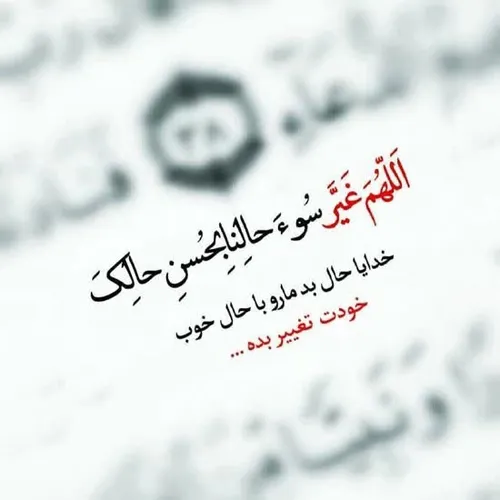 الدعاء
۳۸
فنادته
اَللّهُمَ غَیَّر سُوءَ حالِنا بِحُسنِ حالِکَ
خدایا حال بد مارو با حال خوب
خودت تغییر بده ...